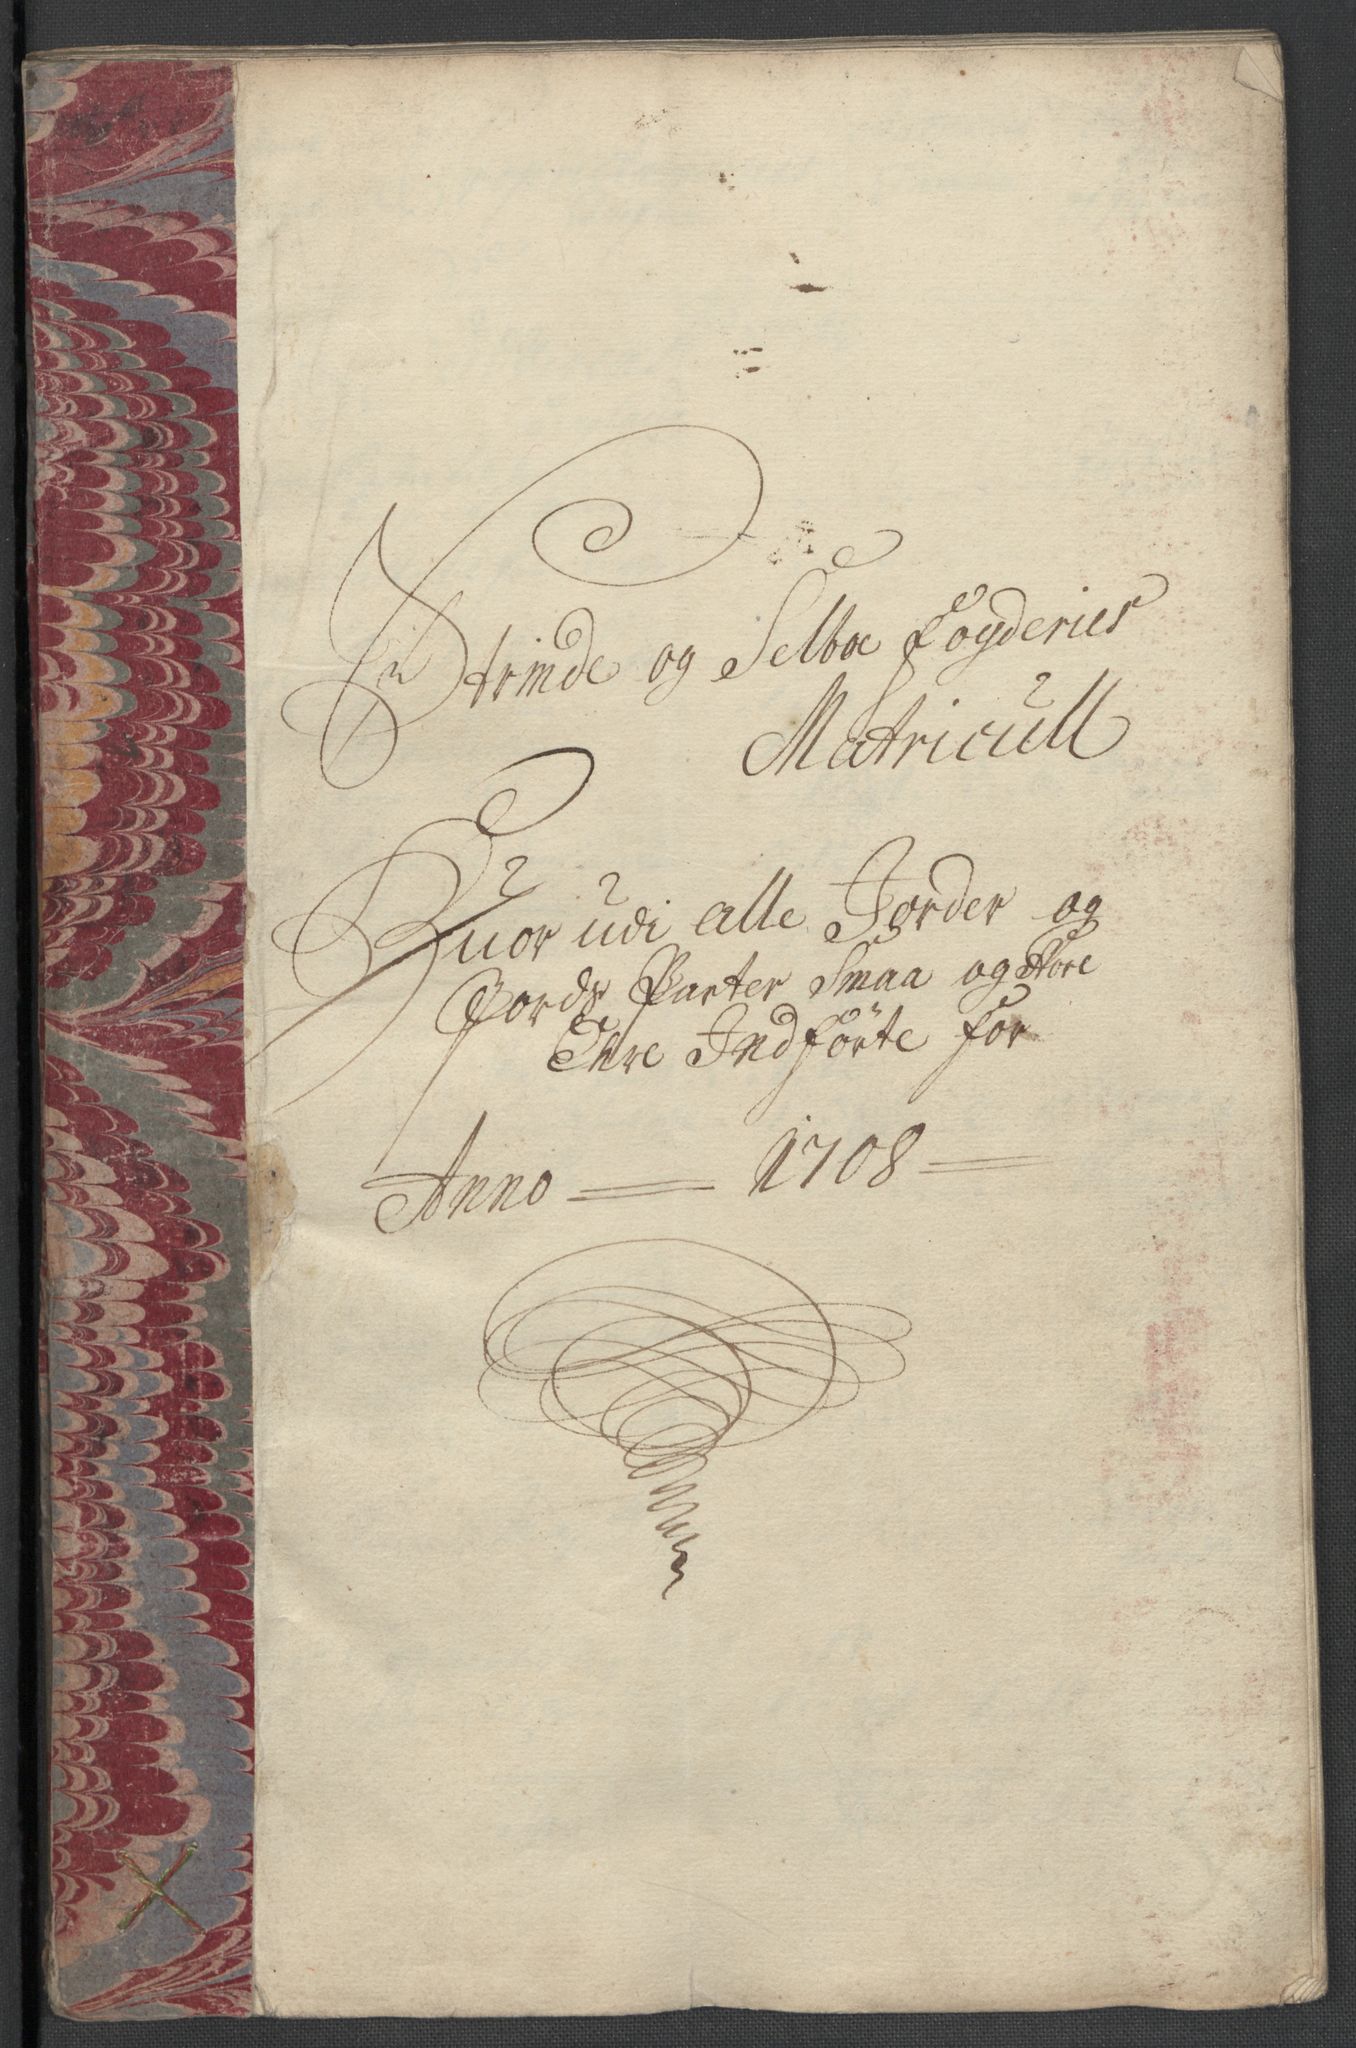 Strinde og Selboe fogderies
Matricull
Huor udi alle Jorder og
Jords Parter Smaa og Store
Ehre Indförte for
Anno 1708